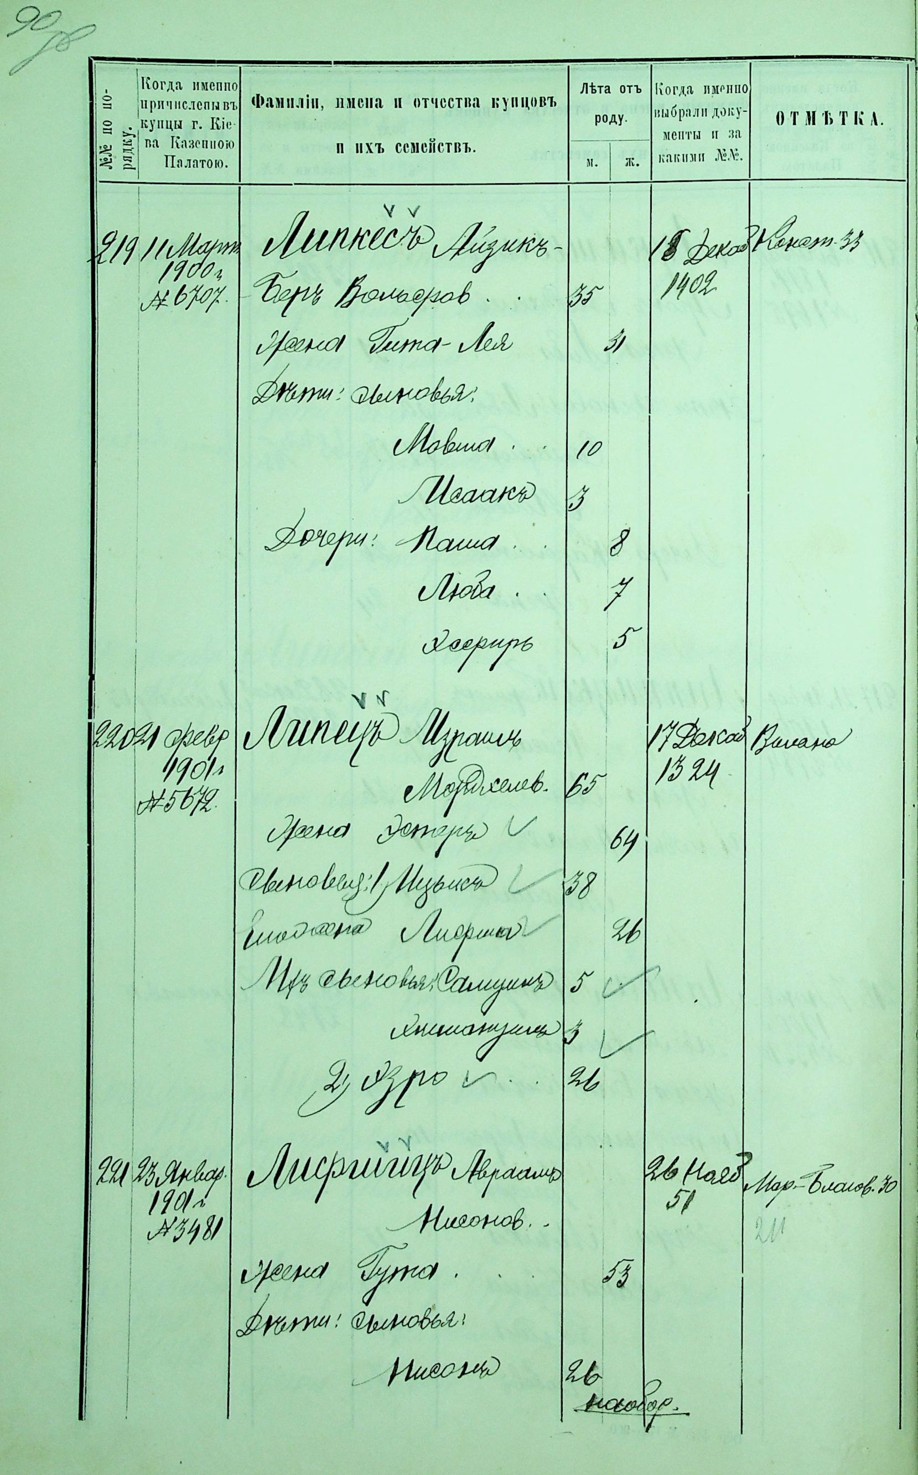 90
№№ по порядку.
Когда именно
причислены въ
купцы г. Кіе-
ва Казенною
Палатою.
Фамиліи, имена и отчества купцовъ
и ихъ семействъ.
Лѣта отъ
роду.
м. ж.
Когда именно
выбрали доку-
менты и за
какими №№.
ОТМѢТКА.
219 11 Март Липкесъ Айзикъ- Декаб
1900 г.
№ 6707. Беръ Вольфов . . 35 1402
Жена Гита-Лея 31
Дѣти: сыновья:
Мовша . . 10
Исаакъ 3
Дочери: Паша . . 8
Люба . . 7
Эсфирь 5
220 21 февр Липецъ Израиль 17 Декаб
1901 г. 1324
№ 5672. Мордхелев. 65
Жена Эстеръ 64
Сыновья: 1)
38
26
Ихъ сыновья: Самуилъ 5
3
2) Эзро . . 26
221 23 Январ. Лифшицъ Авраамъ 26 Нояб Мар.-Благов. 30
1901 г. 51
№ 3481 Нисонов. . . 211
Жена Гута . . . 53
Дѣти: сыновья:
Нисонъ 26
наобор.